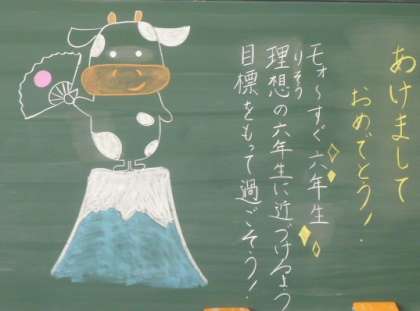 あけまして
おめでとう!
モォ〜すぐ六年生
りそう
理想の六年生に近づけるよう
目標をもって過ごそう!